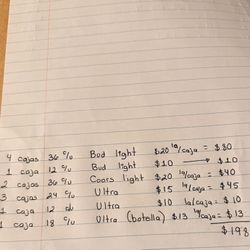 4 cajas 36 c/u Bud light $20 la/caja = $80
1 caja 12 c/u Bud light $10 → $10
2 cajas 36 c/u Coors light $20 la/caja = $40
3 cajas 24 c/u Ultra $15 la/caja = $45
1 caja 12 c/u Ultra $10 la/caja = $10
1 caja 18 c/u Ultra (botella) $13 la/caja = $13
$198